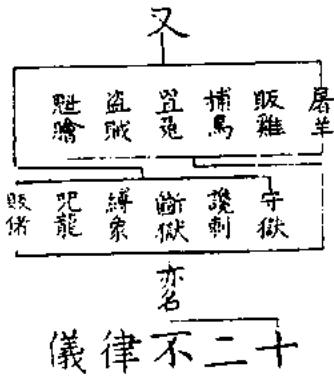 又
屠羊
販雞
捕鳥
罝兔
盜賊
魁膾
守獄
讒刺
斷獄
縛象
咒龍
販猪
亦名
十二不律儀